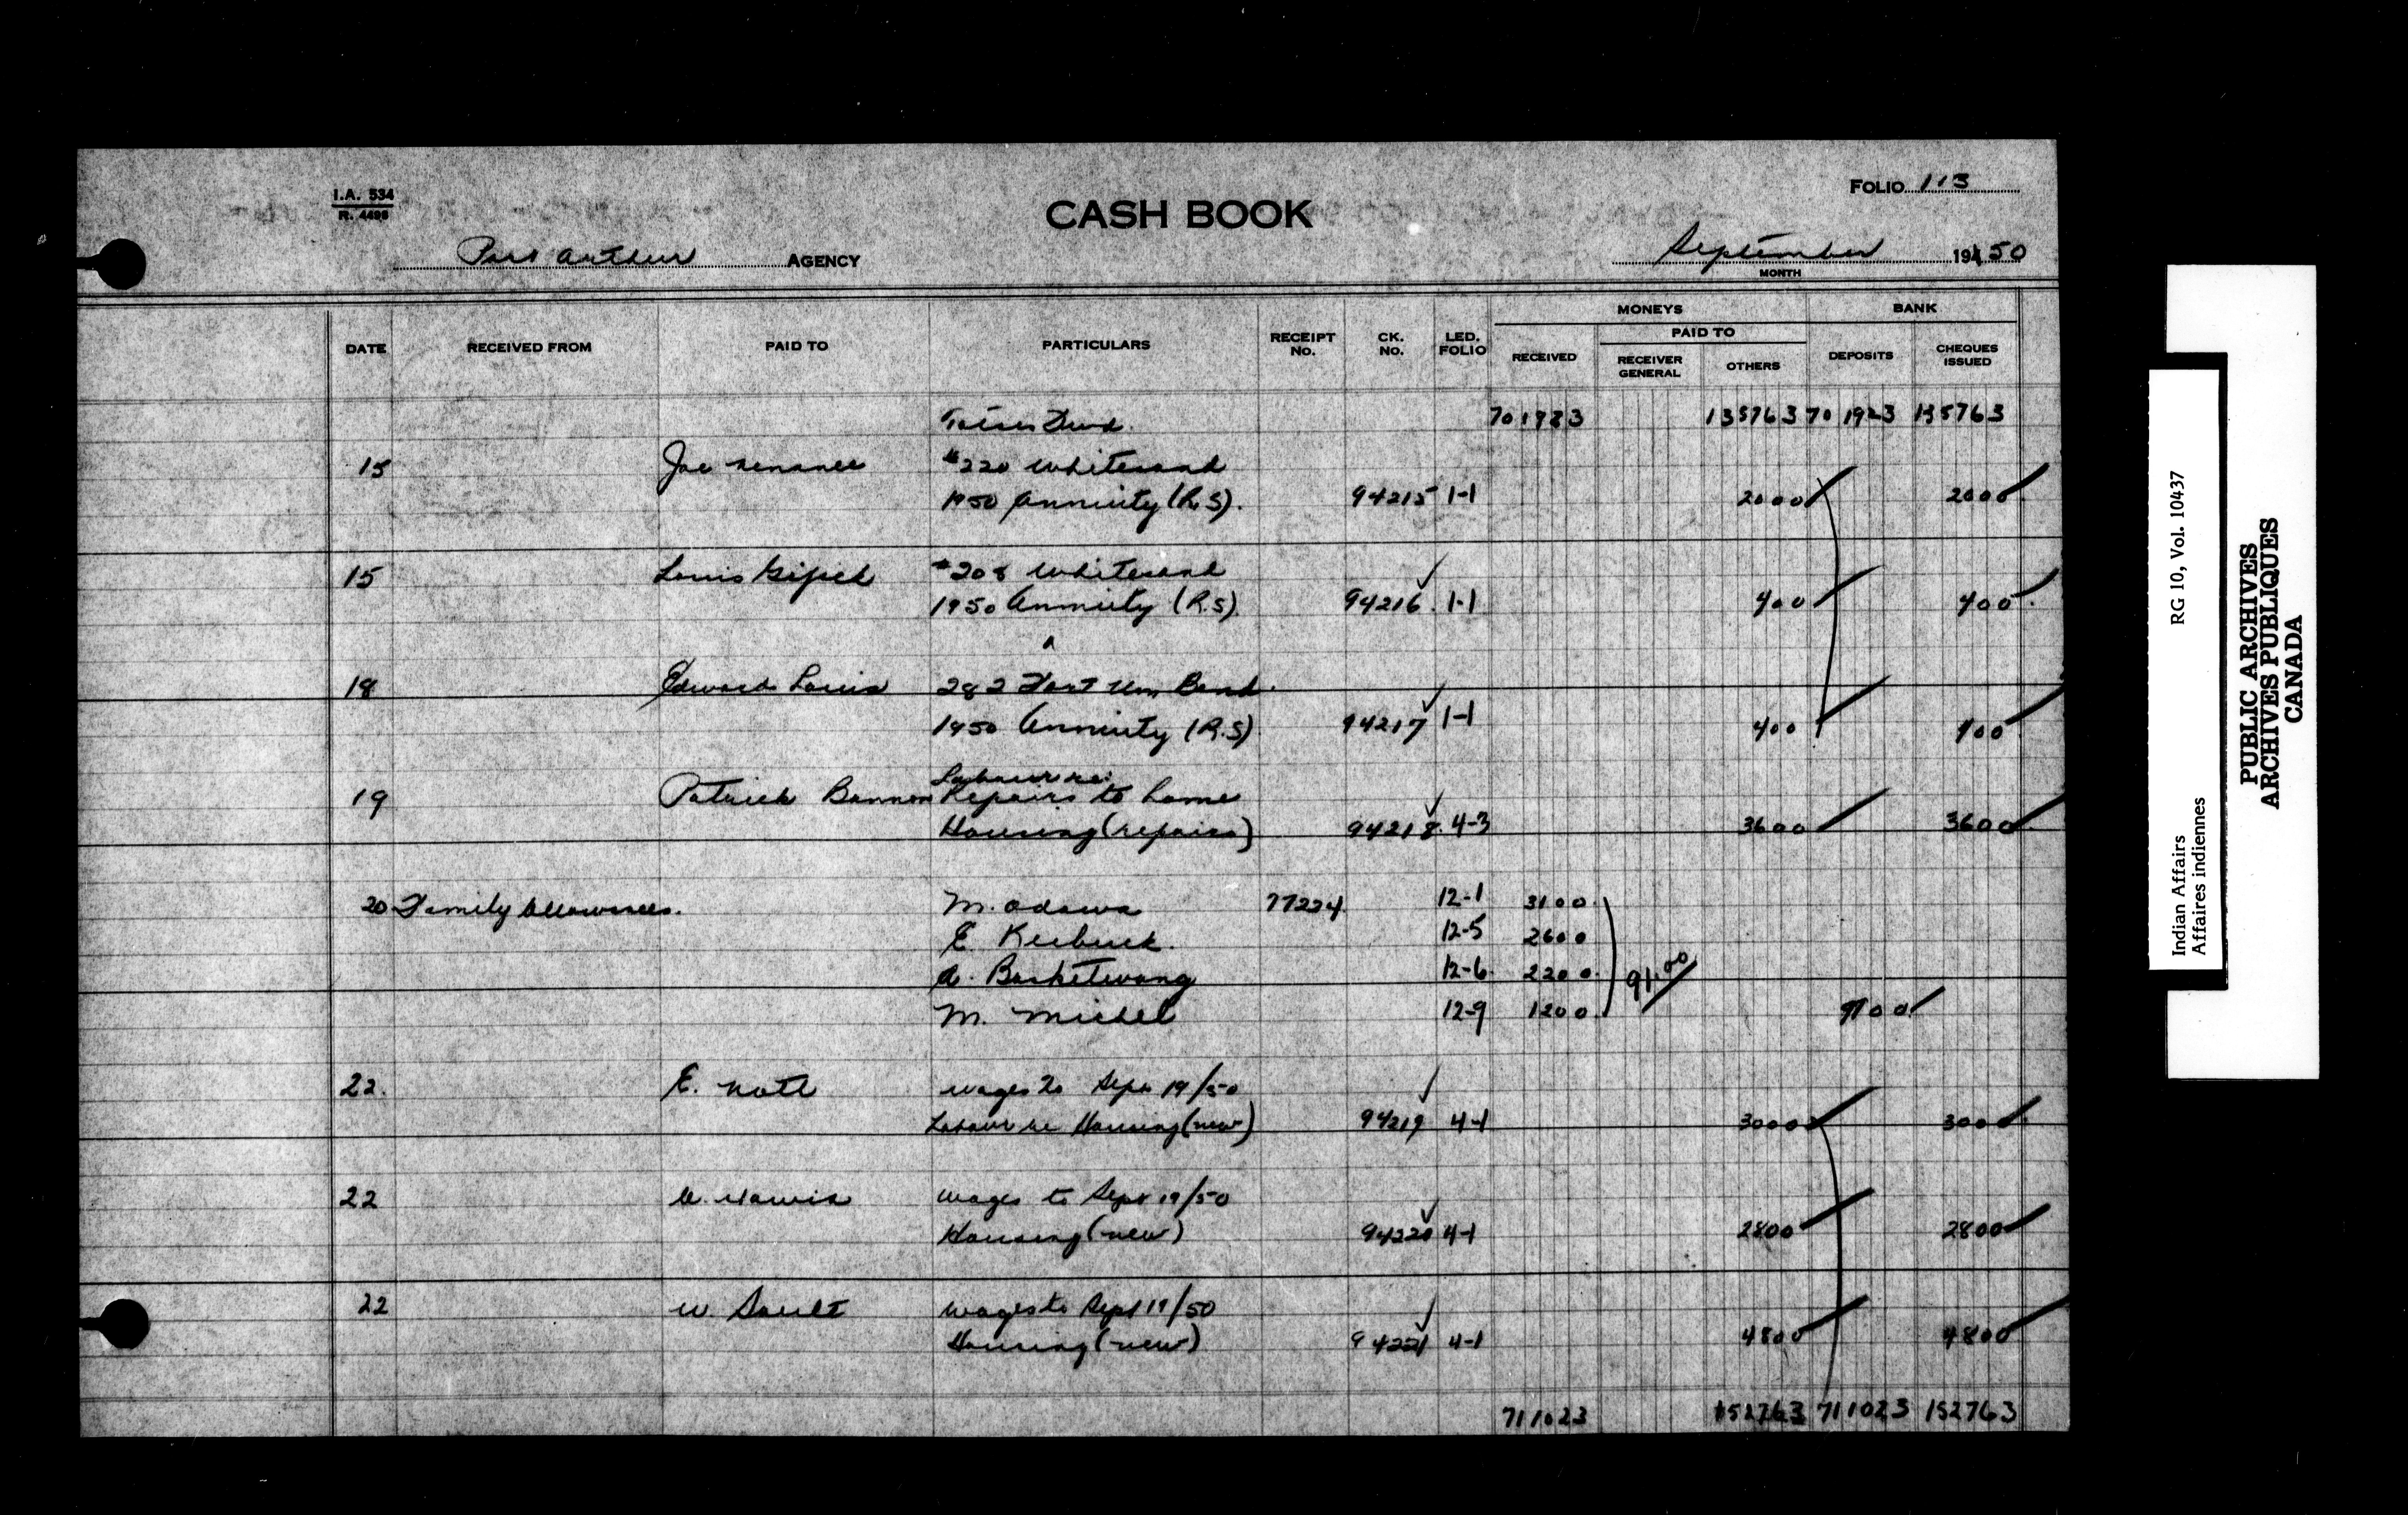 I.A. 534
R. 4496
FOLIO 113
CASH BOOK
Port Arthur AGENCY
September 19450
MONTH
MONEYS BANK
PAID TO
DATE RECEIVED FROM PAID TO PARTICULARS RECEIPT NO. CK. NO. LED. FOLIO RECEIVED RECEIVER GENERAL OTHERS DEPOSITS CHEQUES ISSUED
701923 135763 701923 135763
15 Joe #220 Whitesand
1950 Annuity (R.S). 94215 1-1 2000 2000
15 Louis #208 Whitesand
1950 Annuity (R.S). 94216 1-1 400 400
18 Edward Louis 282 Fort Wm Band.
1950 Annuity (R.S) 94217 1-1 400 400
Labour re:
19 Patrick Bannon Repairs to home
Housing (repairs) 94218 4-3 3600 3600
20 Family Allowances. M. Odawa 77224 12-1 3100
E 12-5 2600
A. Basketwang 12-6 2200 91.00
M. Michel 12-9 1200 9100
22. E. wages to Sept 19/50
Labour re Housing (new) 94219 4-1 3000 3000
22 wages to Sept 19/50
Housing (new) 94220 4-1 2800 2800
22 W. Sault wages to Sept 19/50
Housing (new) 94221 4-1 4800 4800
711023 152763 711023 152763
Indian Affairs RG 10, Vol. 10437
Affaires indiennes
PUBLIC ARCHIVES
ARCHIVES PUBLIQUES
CANADA